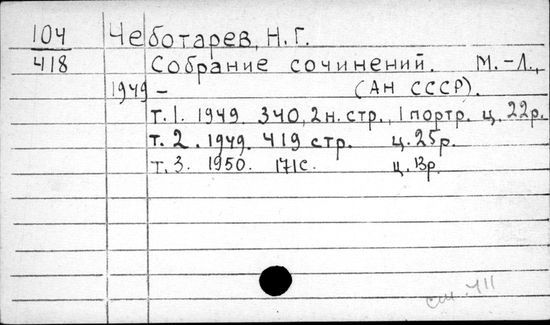 104 Чеботарев, Н.Г.
418 Собрание сочинений. М.-Л.,
1949 - (АН СССР).
т.1. 1949. 340, 2н. стр., 1 портр. ц. 22р.
т.2. 1949. 419 стр. ц. 25р.
т.3. 1950. 171с. ц. 13р.
см.